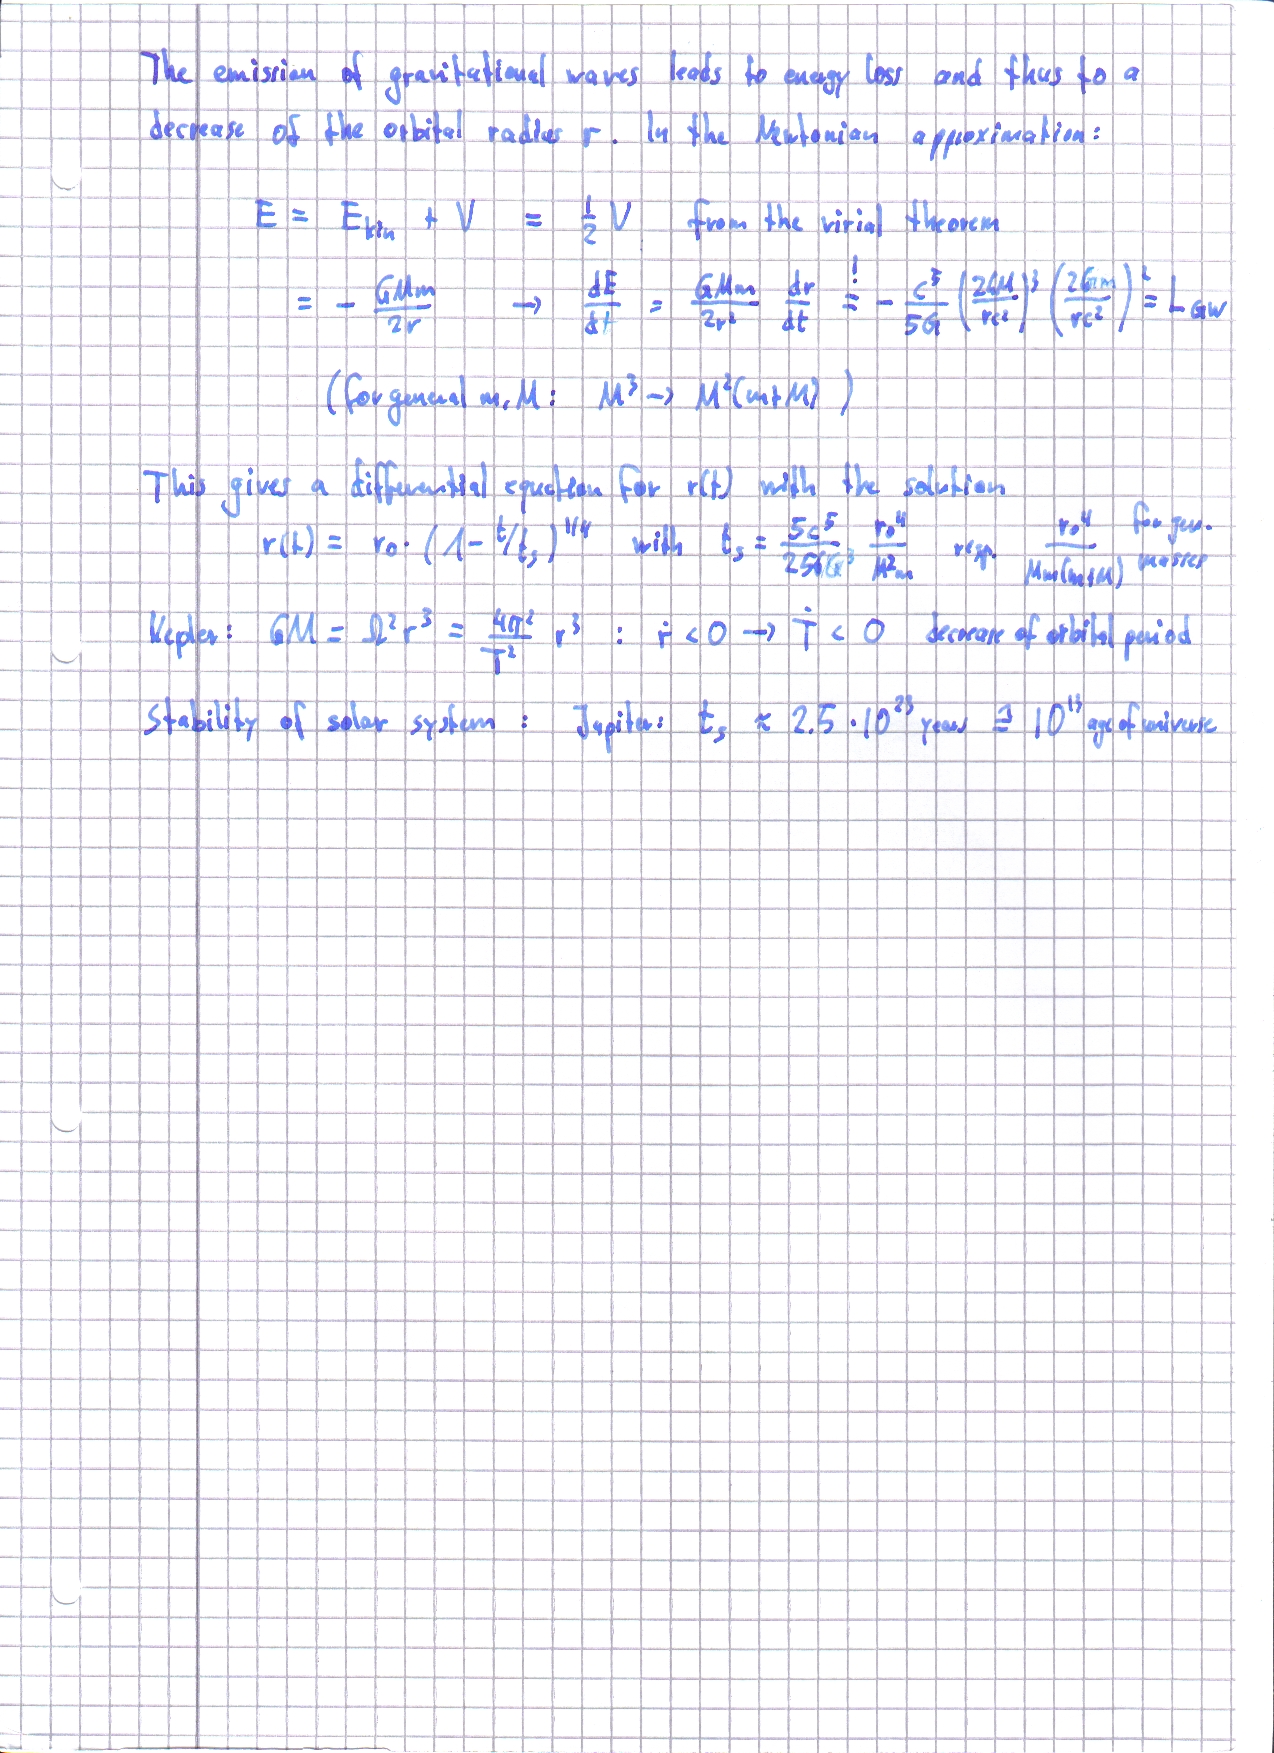 The emission of gravitational waves leads to energy loss and thus to a
decrease of the orbital radius r. In the Newtonian approximation:
E = E_kin + V = 1/2 V from the virial theorem
= - GMm/2r → dE/dt = GMm/2r² dr/dt =! - c⁵/5G (2GM/rc²)³ (2Gm/rc²)² = L_GW
(for general m, M: M³ → M²(m+M))
This gives a differential equation for r(t) with the solution
r(t) = r₀ · (1 - t/t_s)^1/4 with t_s = 5c⁵/256G³ r₀⁴/M²m resp. r₀⁴/Mm(m+M) for gen. masses
Kepler: GM = Ω²r³ = 4π²/T² r³ : ṙ < 0 → Ṫ < 0 decrease of orbital period
Stability of solar system: Jupiter: t_s ≈ 2.5 · 10²³ years ≙ 10¹³ age of universe